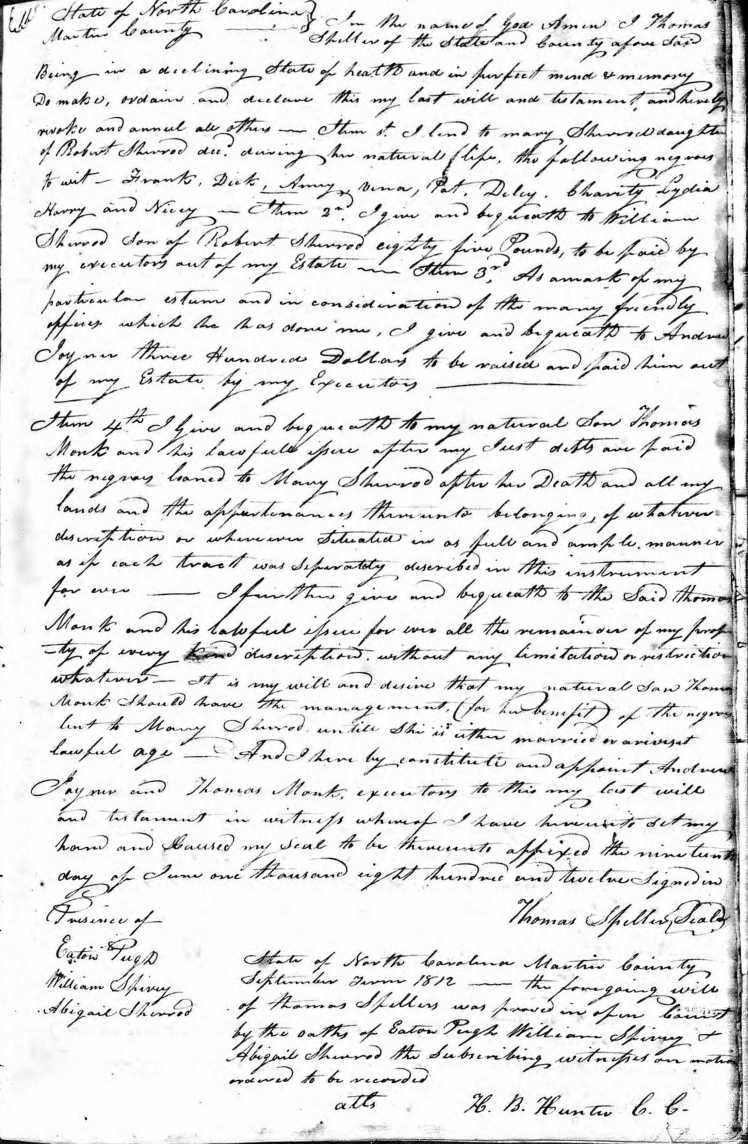 State of North Carolina }
Martin County } In the name of God Amen I Thomas
Speller of the State and County afore Sa.d
Being in a declining State of health and in purfect mind & memory
Do make, ordain and declare this my last will and testament, and hereby
revoke and annul all others — Item 1st. I lend to mary Sherrod daughter
of Robert Sherrod dec.d during her natural life, the following negroes
to wit — Frank, Dick, Amey, Vina, Pat, Diley, Charity Lydia
Harry and Nicey — Item 2nd. I give and bequeath to William
Sherrod Son of Robert Sherrod eighty five Pounds, to be paid by
my executors out of my Estate — Item 3rd, As a mark of my
particular esteem and in consideration of the many friendly
offices which he has done me, I give and bequeath to Andrew
Joyner three Hundred Dollars to be raised and paid him out
of my Estate by my Executors
Item 4th I Give and bequeath to my natural Son Thomas
Monk and his lawfull issue after my Just debts are paid
the negroes loaned to Mary Sherrod after her Death and all my
lands and the appurtenances thereunto belonging, of whatever
discreption or wherever Situated in as full and ample manner
as if each tract was Separately described in this instrument
for ever — I further give and bequeath to the Said Thomas
Monk and his lawful issue for ever all the remainder of my prop
-ty of every kind discreption without any limitation or restriction
whatever — It is my will and desire that my natural Son Thomas
Monk Should have the management (for her benefit) of the negroes
lent to Mary Sherrod until She is either married or arives at
lawful age — And I here by constitute and appoint Andrew
Joyner and Thomas Monk, executors to this my last will
and testament in witness whereof I have hereunto set my
hand and Caused my Seal to be thereunto affixed the nineteenth
day of June one thousand eight hundred and twelve Signed in
Presence of Thomas Speller (Seal)
Eaton Pugh
William Spivey
Abigail Sherrod
State of North Carolina Martin County
September Term 1812 — the foregoing will
of Thomas Spellers was proved in open Court
by the oaths of Eaton Pugh William Spivey &
Abigail Sherrod the Subscribing witnesses on motion
ordered to be recorded
atts H. B. Hunter C. C.